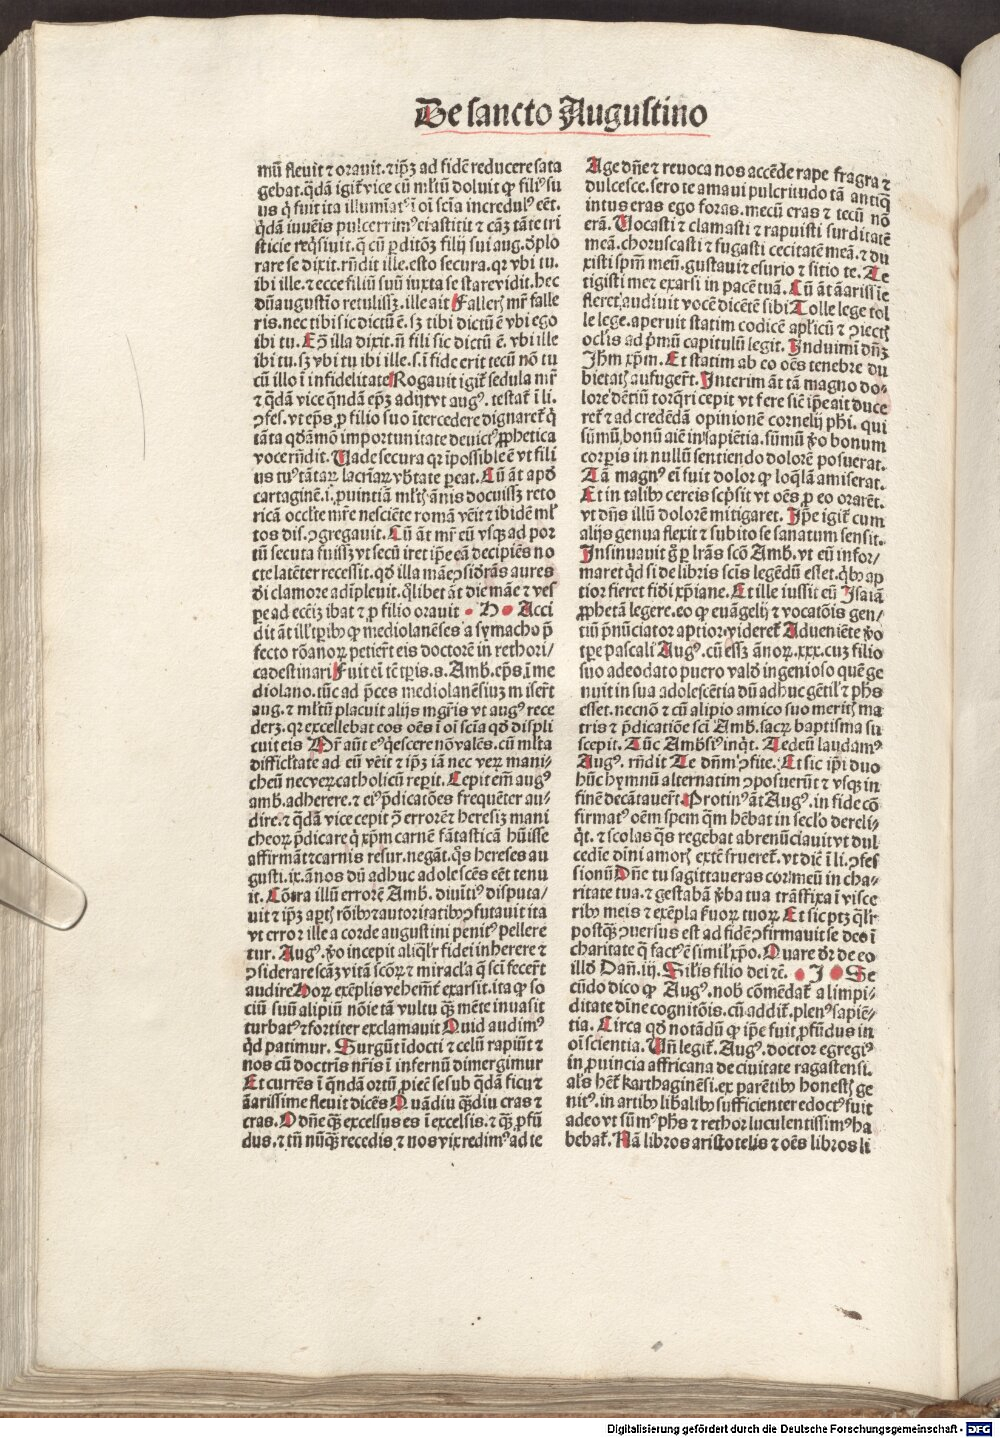 De sancto Augustino
mū fleuit ⁊ orauit.⁊ ip̄ꝫ ad fidē reducere sata
gebat.q̄dā igit᷑ vice cū ml̓tū doluit ꝙ filiꝰ su
us q̇ fuit ita illumīatꝰ ī oī scīa incredulꝰ eēt.
q̇dā iuuēis pulcerrimꝰ ei astitit ⁊ cāꝫ tāte tri
sticie reqͥsiuit.q̄ cū ꝑditōꝫ filij sui aug.dꝓlo
rare se dixit.rn̄dit ille.esto secura.qꝛ vbi tu.
ibi ille.⁊ ecce filiū suū iuxta se stare vidit.hec
dū augustīo retulissꝫ.ille ait Falleris mr̄ falle
ris.nec tibi sic dictū ē.sꝫ tibi dictū ē vbi ego
ibi tu. Cō illa dixit.n̄ fili sic dictū ē. vbi ille
ibi tu.sꝫ vbi tu ibi ille.s.ī fide erit tecū nō tu
cū illo ī infidelitate Rogauit igit᷑ sedula mr̄
⁊ q̄dā vice quendā ep̄ꝫ adijt vt augꝰ. testat᷑ ī li.
ꝯfes.vt ep̄s ꝓ filio suo īterceder dignaret᷑ q̇
tāta qdāmō importunitate deuictꝰ ꝓphetica
voce rn̄dit. Uade secura qꝛ īpossibile ē vt fili
us tuꝰ tātaꝝ lacrīaꝝ vb̓tate ꝑeat. Cū āt apd̓
cartaginē.i.ꝓuintiā ml̓tis ānis docuissꝫ reto
ricā occl̓te mr̄e nesciēte romā vēit ⁊ ibidē ml̓
tos dis.ꝯgregauit. Cū āt mr̄ eū vsqꝫ ad por
tū secuta fuissꝫ vt secū iret ip̄e eā decipiēs no
cte latēter recessit.qd̓ illa māe ꝯsid̓rās aures
d̓i clamore adīpleuit.q̄libet āt die māe ⁊ ves
ꝑe ad ecciꝫ ibat ⁊ ꝓ filio orauit • H • Acci
dit āt ill̓ tꝑibꝰ ꝙ mediolanēses a symacho p̄
fecto rōanoꝝ petier̄t eis doctorē in rethori/
ca destinari Fuit eī tē tꝑis.s.Amb.ep̄s.ī me
diolano.tūc ad p̄ces mediolanēsiuꝫ miser̄t
aug.⁊ ml̓tū placuit alijs mgr̄is vt augꝰ rece
deꝛꝫ.qꝛ excellebat eos oēs ī oī scīa qd̓ displi
cuit eis Mr̄ aūt eꝰ qͥescere nō valēs.cū ml̓ta
difficl̓tate ad eū vēit ⁊ ip̄ꝫ iā nec veꝝ mani/
cheū nec veꝝ catholicū reꝑit. Cepit em̄ augꝰ
amb.adherere.⁊ eiꝰ p̄dicatōes frequēter au/
dire.⁊ q̄dā vice cepit ꝯͣ errorē ⁊ heresiꝫ mani
cheoꝝ p̄dicare q̇ xp̄m carnē fātasticā hūisse
affirmāt ⁊ carnis resur.negāt.q̄s hereses au
gusti.ix.ānos dū adhuc adolescēs eēt tenu
it. Cōtra illū errorē Amb. diuītiꝰ disputa/
uit ⁊ ip̄ꝫ aꝑtis rōibꝰ ⁊ autoritatibꝰ ꝯfutauit ita
vt error ille a corde augustini penitꝰ pellere
tur. Augꝰ.v̓o incepit aliql̓r fidei inherere ⁊
ꝯsiderare scāꝫ vitā scōꝝ ⁊ miracl̓a q̄ sci fecer̄t
audire Hoꝝ exēplis vehemt̄ exarsit.ita ꝙ so
ciū suū alipiū nōie tā vultu qꝫ mēte inuasit
turbatꝰ ⁊ fortiter exclamauit Quid audimꝰ
qd̓ patimur. Surgūt īdocti ⁊ celū rapiūt ⁊
nos cū doctrīs nr̄is ī infernū dimergimur
Et currēs ī quendā ortū ꝓiec̄ se sub q̄dā ficu ⁊
āarissime fleuit dicēs Quādiu qꝫdiu cras ⁊
cras. O dn̄e qꝫ excelsus es ī excelsis.⁊ qꝫ ꝓfū
dus.⁊ tn̄ nūqꝫ recedis ⁊ nos vix redimꝰ ad te
Age dn̄e ⁊ reuoca nos accēde rape fragra ⁊
dulcesce.sero te amaui pulcritudo tā antiq̄
intus eras ego foras.mecū eras ⁊ tecū nō
erā. Uocasti ⁊ clamasti ⁊ rapuisti surditatē
meā.choruscasti ⁊ fugasti cecitatē meā.⁊ du
xisti spm̄ meū.gustaui ⁊ esurio ⁊ sitio te. Te
tigisti me ⁊ exarsi in pacē tuā. Cū āt āariss̄ īe
fleret᷑,audiuit vocē dicētē sibi Tolle lege tol
le lege.aperuit statim codicē apl̓icū ⁊ ꝯiectis
ocl̓is ad p̓mū capitulū legit. Induimī dn̄ꝫ
Jhm̄ xp̄m. Et statim ab eo oēs tenebre du
bietatis aufuger̄t. Interim āt tā magno do-
lore dētiū torqueri cepit vt fere sic̄ ip̄e ait duce
ret᷑ ⁊ ad credēdā opinionē cornelij ph̄i. qui
sūmū bonū aīe in sapiētia.sūmū v̓o bonum
corꝑis in nullū sentiendo dolorē posuerat.
Tā magnꝰ eī fuit dolor ꝙ loq̄lā amiserat.
Et in talibꝰ cereis scp̓sit vt oēs ꝓ eo orarēt.
vt dn̄s illū dolorē mitigaret. Ip̄e igit᷑ cum
alijs genua flexit ⁊ subito se sanatum sensit.
Insinuauit q̄ ꝑ lr̄as scō Amb. vt eū infor/
maret qd̓ si de libris scīs legēdū esset.qͦbꝰ ap
tior fieret fidi xp̄iane. Et ille iussit eū Isaiā
ꝓphetā legere.eo ꝙ euāgelij ⁊ vocatōis gen/
tiū p̄nūciator aptior videret᷑ Adueniēte v̓o
tꝑe pascali Augꝰ. cū eēꝫ ānoꝝ.xxx.cuꝫ filio
suo adeodato puero vald̓ ingenioso quē ge
nuit in sua adolescētia dū adhuc gētil̓ ⁊ ph̄s
esset.necnō ⁊ cū alipio amico suo meritis ma
tris ⁊ p̄dicatiōe scī Amb. sacꝝ baptisma su
scepit. Tūc Ambrosiꝰ inqͥt. Te deū laudamꝰ
Augꝰ. rn̄dit Te dn̄m ꝯfite. Et sic ip̄i duo
hūc hymnū alternatim ꝯposuerūt ⁊ vsqꝫ in
finē decātauer̄t. Protinꝰ āt Augꝰ. in fide cō
firmatꝰ oēm spem quā hēbat in secl̓o dereli/
qͥt.⁊ scolas q̄s regebat abrenūciauit vt dul
cedīe dīni amoris extē frueret᷑.vt dic̄ ī li.ꝯfes
sionū Dn̄e tu sagittaueras cor meū in cha/
ritate tua.⁊ gestabā v̓ba tua trāsfixa ī visce
ribꝰ meis ⁊ exēpla seruoꝝ tuoꝝ Et sic ptꝫ ql̓r
postqꝫ ꝯuersus est ad fidē ꝯfirmauit se deo ī
charitate q̄ factꝰ ē simil̓ xp̄o. Quare dr̄ de eo
illd̓ Dan̄.iij. Sil̓is filio dei ⁊c̄. • I • Se
cūdo dico ꝙ Augꝰ.nob̓ cōmēdat᷑ a limpi/
ditate dīne cognitōis.cū addit᷑.plenꝰ sapiē/
tia. Circa qd̓ notādū ꝙ ip̄e fuit ꝓfūdus in
oī scientia. Un̄ legit᷑. Augꝰ.doctor egregiꝰ
in ꝓuincia affricana de ciuitate ragastensi.
al̓s hēt᷑ karthaginēsi.ex parētibꝰ honestis ge
nitꝰ.in artibꝰ lib̓alibꝰ sufficienter edoctꝰ fuit
adeo vt sūmꝰ ph̄s ⁊ rethor luculentissimꝰ ha
bebat᷑. Nā libros aristotelis ⁊ oēs libros li
Digitalisierung gefördert durch die Deutsche Forschungsgemeinschaft - DFG